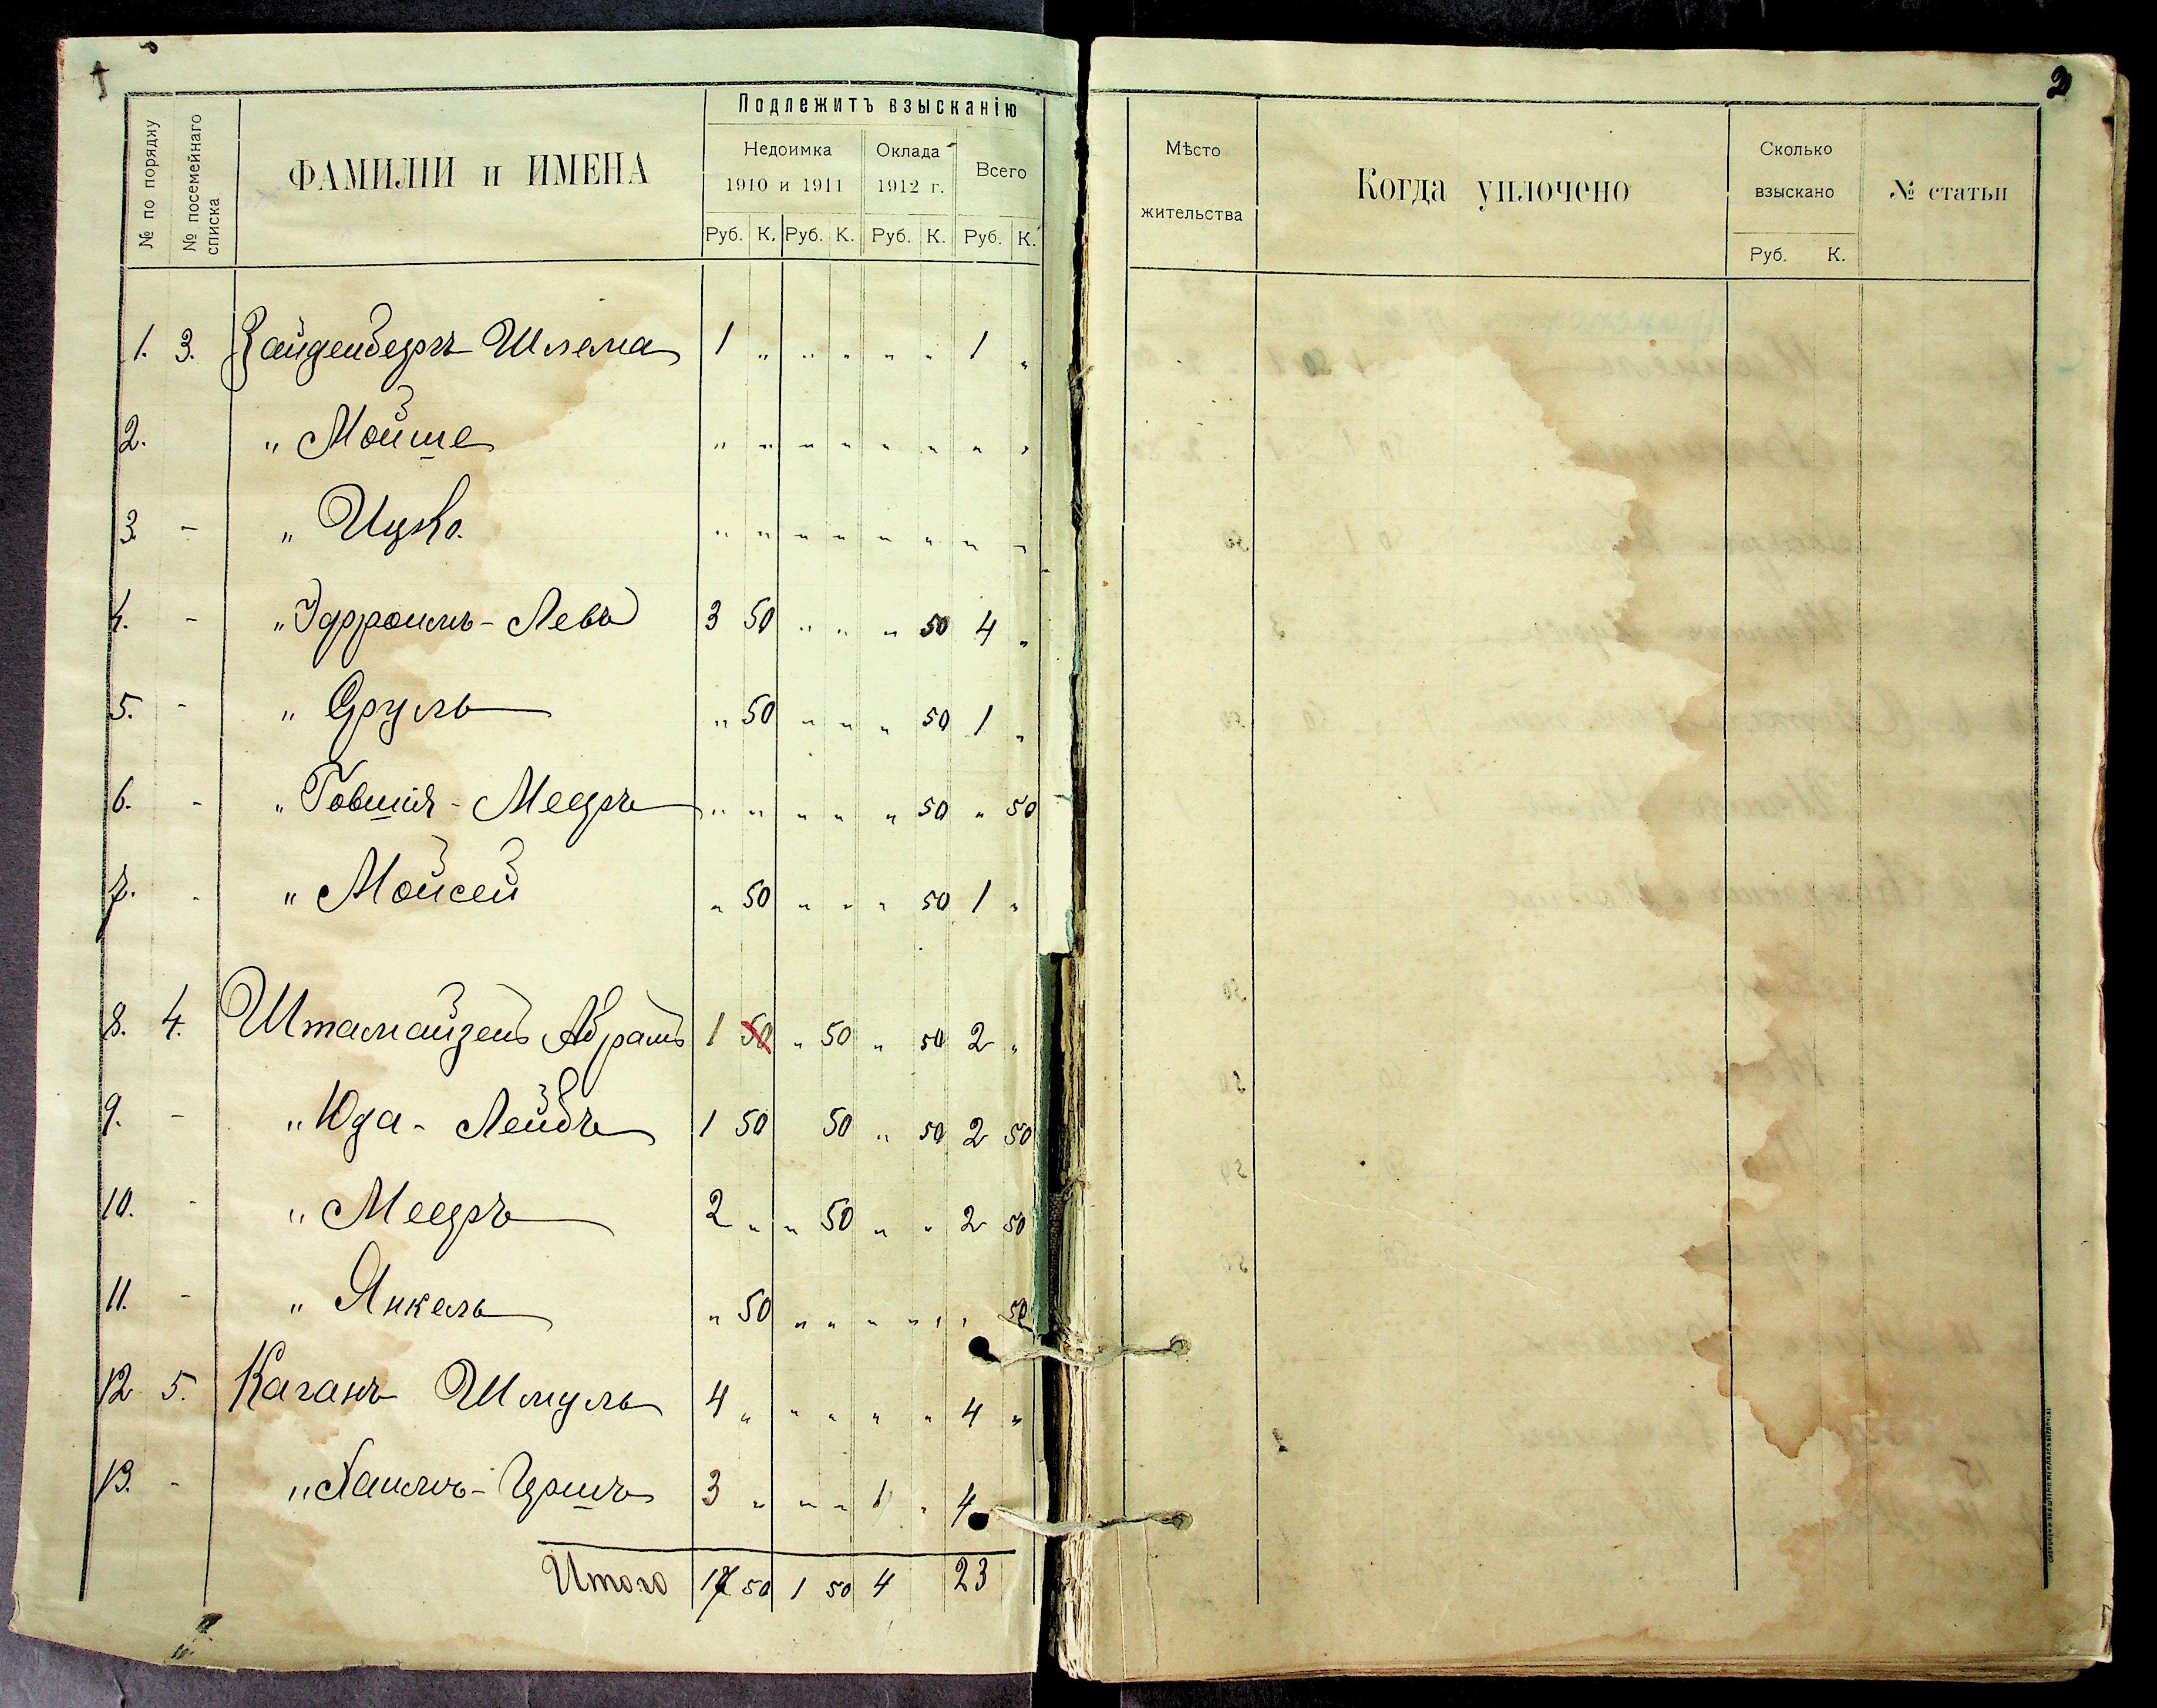 1
2
№ по порядку
№ посемейнаго списка
ФАМИЛІИ и ИМЕНА
Подлежитъ взысканію
Недоимка
1910 и 1911
Оклада
1912 г.
Всего
Руб. К. Руб. К. Руб. К. Руб. К.
1. 3. Зайденбергъ Шлема 1 " " " " " 1 "
2. " Мойше " " " " " " " "
3 - " Ицко. " " " " " " " "
4. - " Эфроимъ-Лейб 3 50 " " " 50 4 "
5. - " Сруль " 50 " " " 50 1 "
6. - " Говшія-Мееръ " " " " " 50 " 50
7. - " Мойсей " 50 " " " 50 1 "
8. 4. Штамайзенъ Абрамъ 1 50 " 50 " 50 2 "
9. - " Юда-Лейбъ 1 50 50 " 50 2 50
10. - " Мееръ 2 " " 50 " " 2 50
11. - " Янкель " 50 " " " " " 50
12 5. Каганъ Шмуль 4 " " " " " 4 "
13. - " Хаимъ-Гершъ 3 " " " 1 " 4
Итого 17 50 1 50 4 23
Мѣсто
жительства
Когда уплочено
Сколько
взыскано
Руб. К.
№ статьи